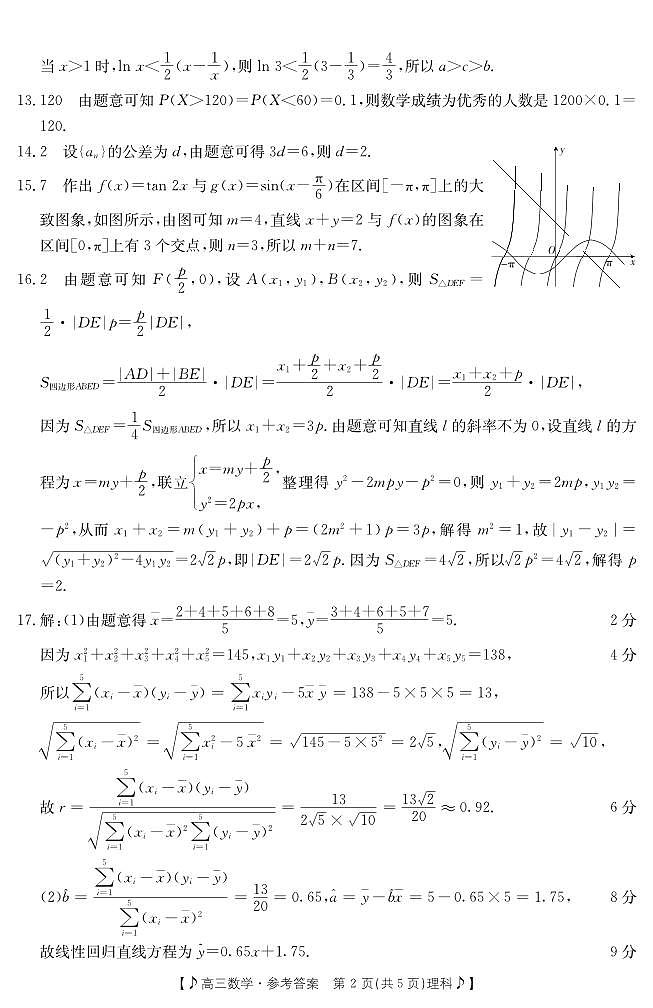 当 x>1 时,ln x<1/2(x-1/x),则 ln 3<1/2(3-1/3)=4/3,所以 a>c>b.
13.120 由题意可知 P(X>120)=P(X<60)=0.1,则数学成绩为优秀的人数是 1200×0.1=
120.
14.2 设{aₙ}的公差为 d,由题意可得 3d=6,则 d=2.
15.7 作出 f(x)=tan 2x 与 g(x)=sin(x-π/6)在区间[-π,π]上的大
致图象,如图所示,由图可知 m=4,直线 x+y=2 与 f(x)的图象在
区间[0,π]上有 3 个交点,则 n=3,所以 m+n=7.
y
O
-π
π
x
16.2 由题意可知 F(p/2,0),设 A(x₁,y₁),B(x₂,y₂),则 S△DEF=
1/2·|DE|p=p/2|DE|,
S四边形ABED=(|AD|+|BE|)/2·|DE|=(x₁+p/2+x₂+p/2)/2·|DE|=(x₁+x₂+p)/2·|DE|,
因为 S△DEF=1/4S四边形ABED,所以 x₁+x₂=3p.由题意可知直线 l 的斜率不为 0,设直线 l 的方
程为 x=my+p/2,联立{x=my+p/2, y²=2px, 整理得 y²-2mpy-p²=0,则 y₁+y₂=2mp,y₁y₂=
-p²,从而 x₁+x₂=m(y₁+y₂)+p=(2m²+1)p=3p,解得 m²=1,故|y₁-y₂|=
√((y₁+y₂)²-4y₁y₂)=2√2p,即|DE|=2√2p.因为 S△DEF=4√2,所以√2p²=4√2,解得 p
=2.
17.解:(1)由题意得 x̄=(2+4+5+6+8)/5=5,ȳ=(3+4+6+5+7)/5=5. 2 分
因为 x₁²+x₂²+x₃²+x₄²+x₅²=145,x₁y₁+x₂y₂+x₃y₃+x₄y₄+x₅y₅=138, 4 分
所以 ∑_{i=1}^{5}(xᵢ-x̄)(yᵢ-ȳ)=∑_{i=1}^{5}xᵢyᵢ-5x̄ ȳ=138-5×5×5=13,
√(∑_{i=1}^{5}(xᵢ-x̄)²)=√(∑_{i=1}^{5}xᵢ²-5x̄²)=√(145-5×5²)=2√5,√(∑_{i=1}^{5}(yᵢ-ȳ)²)=√10,
故 r=∑_{i=1}^{5}(xᵢ-x̄)(yᵢ-ȳ)/√(∑_{i=1}^{5}(xᵢ-x̄)²∑_{i=1}^{5}(yᵢ-ȳ)²)=13/(2√5×√10)=13√2/20≈0.92. 6 分
(2)b̂=∑_{i=1}^{5}(xᵢ-x̄)(yᵢ-ȳ)/∑_{i=1}^{5}(xᵢ-x̄)²=13/20=0.65,â=ȳ-b̂x̄=5-0.65×5=1.75, 8 分
故线性回归直线方程为 ŷ=0.65x+1.75. 9 分
【♪高三数学·参考答案 第 2 页(共 5 页)理科♪】